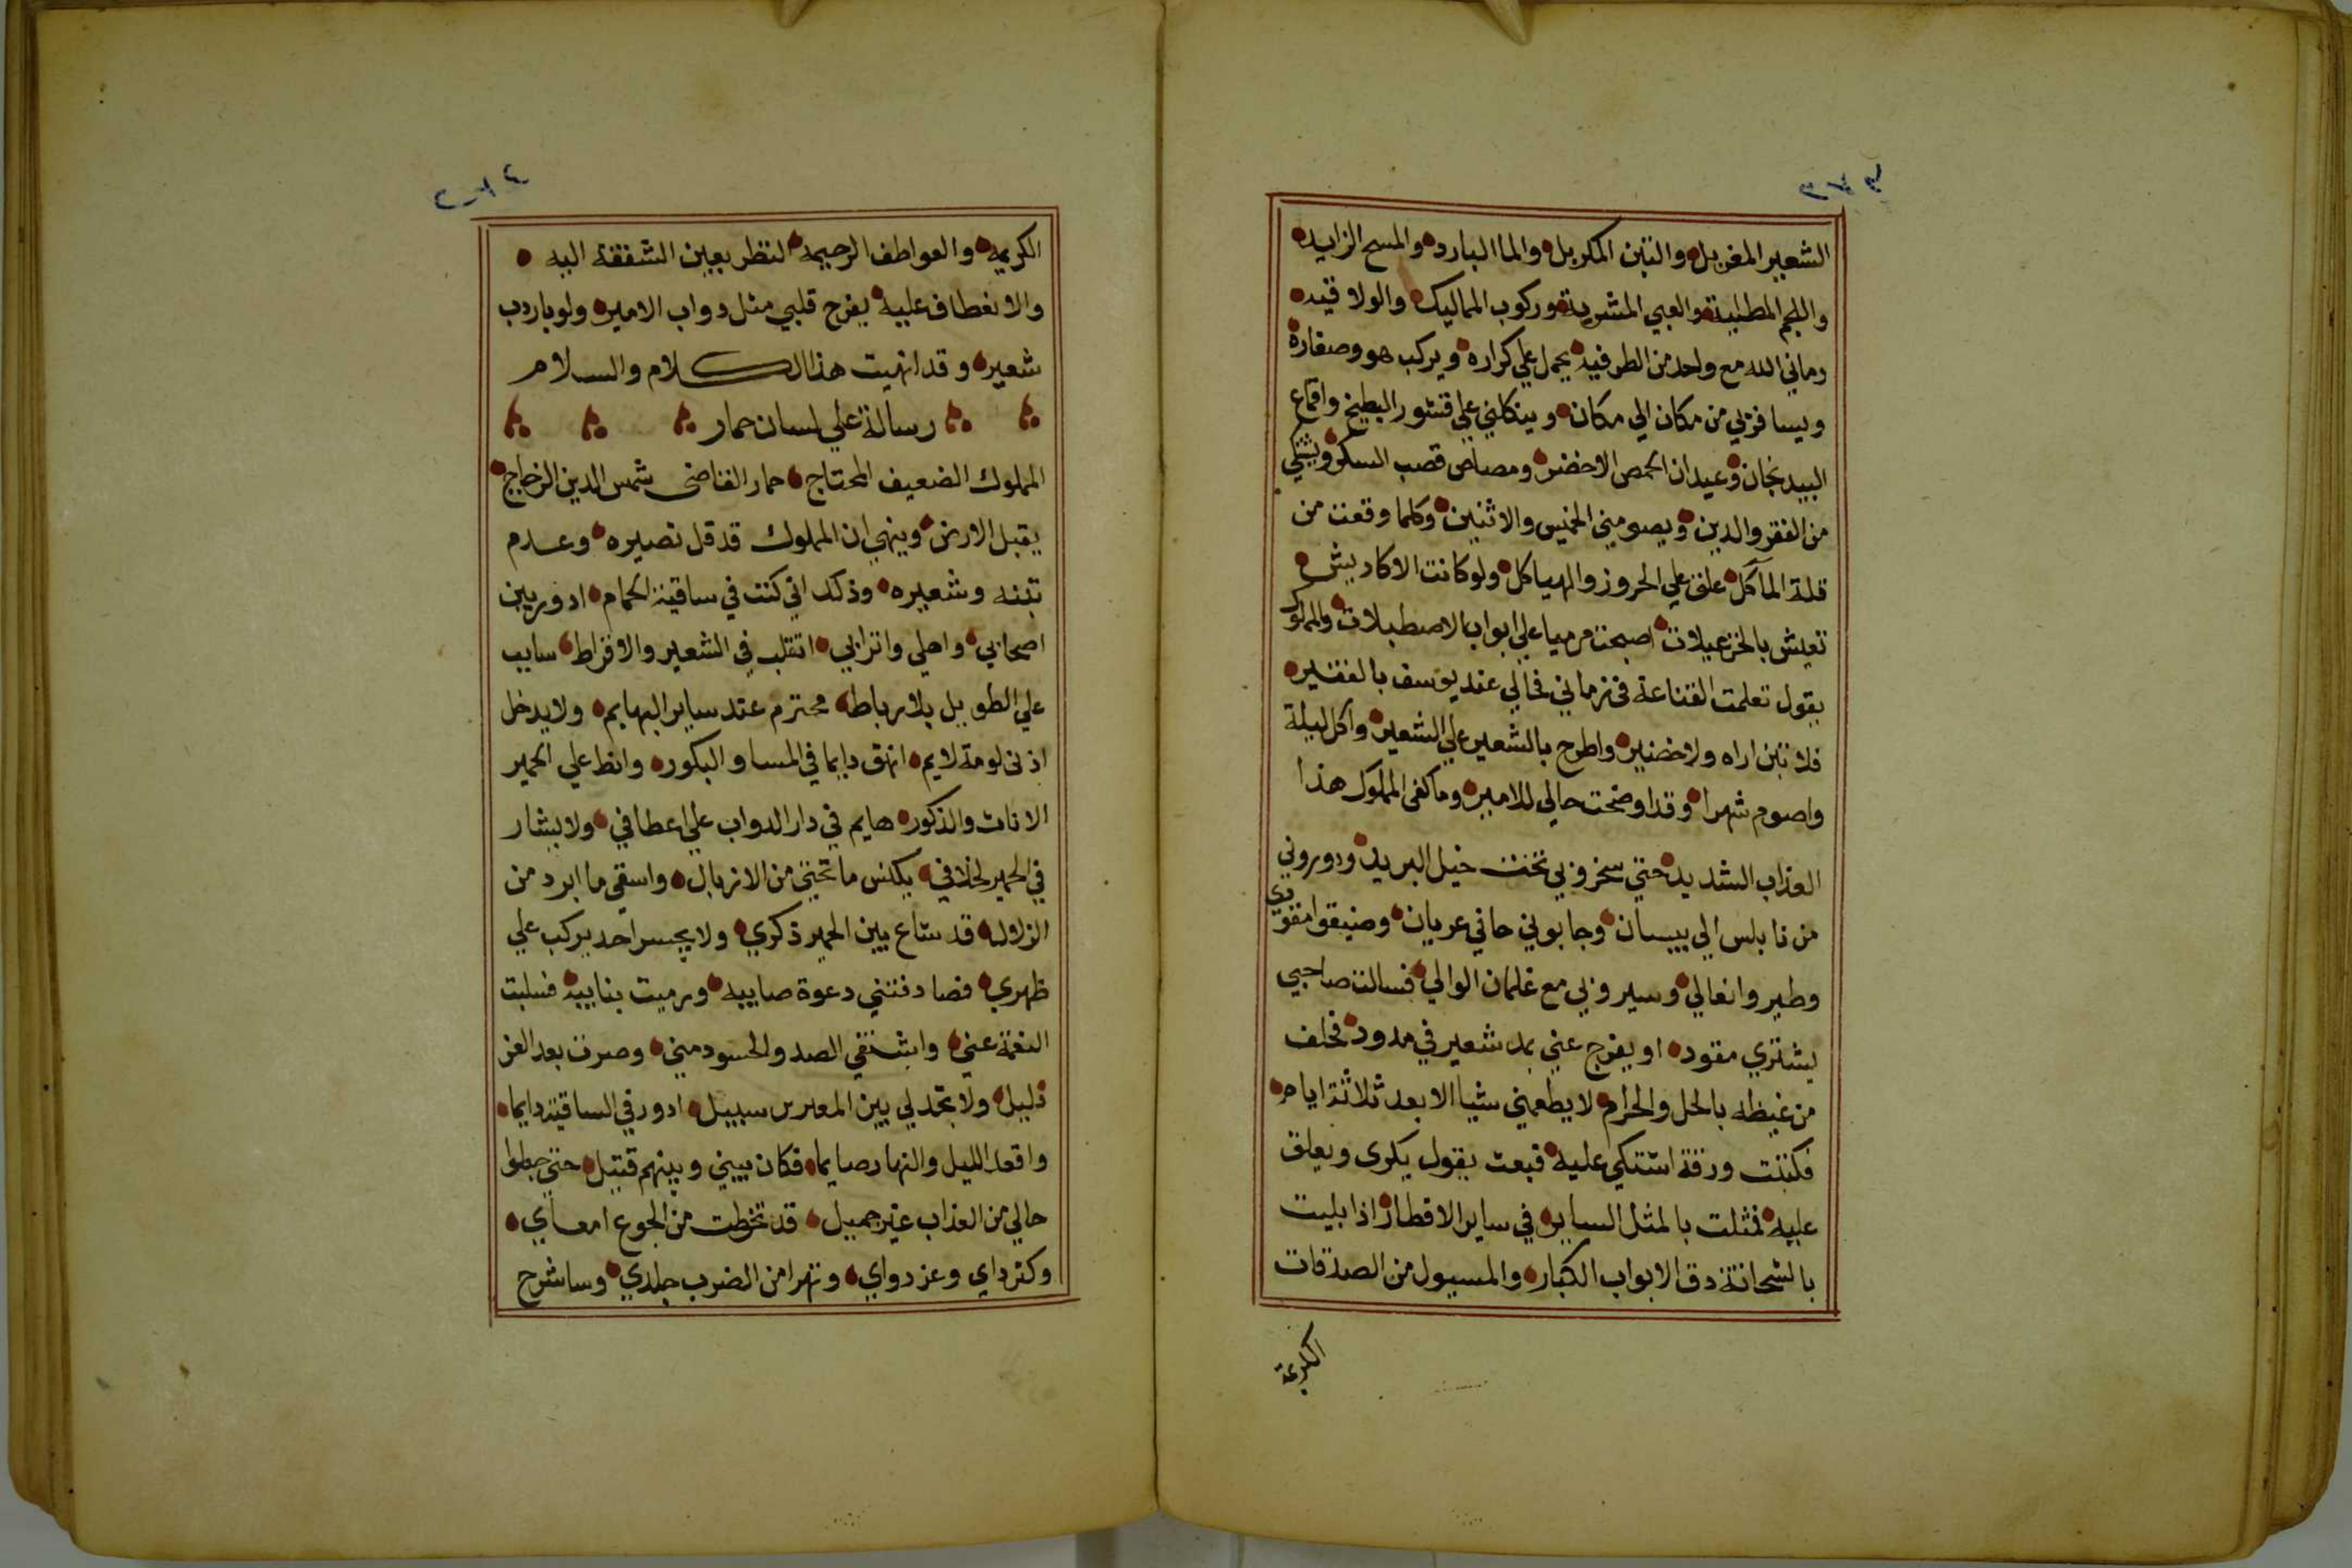 ٢٧٣
الشعير المغربل والتبن المكربل والما البارد والمسح الزايده
واللجم المطلية والعبي المشرية وركوب المماليك والولاقيه
رماني الله مع واحد من الطرفيه يحمل علي كراره ويركب هو وصغاره
ويسافر بي من مكان الي مكان وينكلني علي قشور البطيخ واقماع
البيدنجان وعيدان الحمص الاخضر ومصاص قصب السكر ويشتكي
من الفقر والدين ويصومني الخميس والاثنين وكلما وقعت من
قلة المآكل علق علي الحروز والهياكل ولو كانت الاكاديش
تعيش بالخزعبلات اصبحت مرميا علي ابواب الاصطبلات والمملوك
يقول تعلمت القناعة في زماني فحالي عند يوسف بالفقير
فلا تبن اراه ولا خضير واطرح بالشعير علي الشعير واكل ليلة
واصوم شهرا وقد اوضحت حالي للامير وما كفى المملوك هذا
العذاب الشديد حتي سخروني تحت خيل البريد ودوروني
من نابلس الي بيسان وجابوني حافي عريان وضيقوا مقودي
وطيروا نعالي وسيروني مع غلمان الوالي فسالت صاحبي
يشتري مقود او يفرج عني بمد شعير في مدود فحلف
من غيظه بالحل والحرام لا يطعمني شيا الا بعد ثلاثة ايام
فكتبت ورقة اشتكي عليه فبعث يقول يكرى ويعلق
عليه فمثلت بالمثل الساير في ساير الاقطار اذا بليت
بالشحاتة دق الابواب الكبار والمسيول من الصدقات
الكريمة
٢٧٤
الكريمه والعواطف الرحيمه النظر بعين الشفقة اليه
والانعطاف عليه يفرح قلبي مثل دواب الامير ولو باردب
شعير وقد انهيت هذا الكلام والسلام
رسالة علي لسان حمار
المملوك الضعيف المحتاج حمار القاضى شمس الدين الزجاج
يقبل الارض وينهي ان المملوك قد قل نصيره وعدم
تبنه وشعيره وذلك اني كنت في ساقية الحمام ادور بين
اصحابي واهلي واترابي اتقلب في الشعير والاقراط سايب
علي الطويل بلا رباط محترم عند ساير البهايم ولا يدخل
اذني لومة لايم انهق دايما في المسا والبكور وانط علي الحمير
الاناث والذكور هايم في دار الدواب علي اعطافي ولا يشار
في الحمير لخلافي يكنس ما تحتي من الازبال واسقي ما ابرد من
الزلال قد شاع بين الحمير ذكري ولا يجسر احد يركب علي
ظهري فصادفتني دعوة صايبه ورميت بنايبه فسلبت
النعمة عني واشتفي الضد والحسود مني وصرت بعد العز
ذليل ولا تجد لي بين المعبرس سبيل ادور في الساقية دايما
واقعد الليل والنهار صايما فكان بيني وبينهم قتيل حتي جعلوا
حالي من العذاب غير جميل قد تخرطت من الجوع امعاي
وكثر داي وعز دواي وتهرا من الضرب جلدي وساشرح